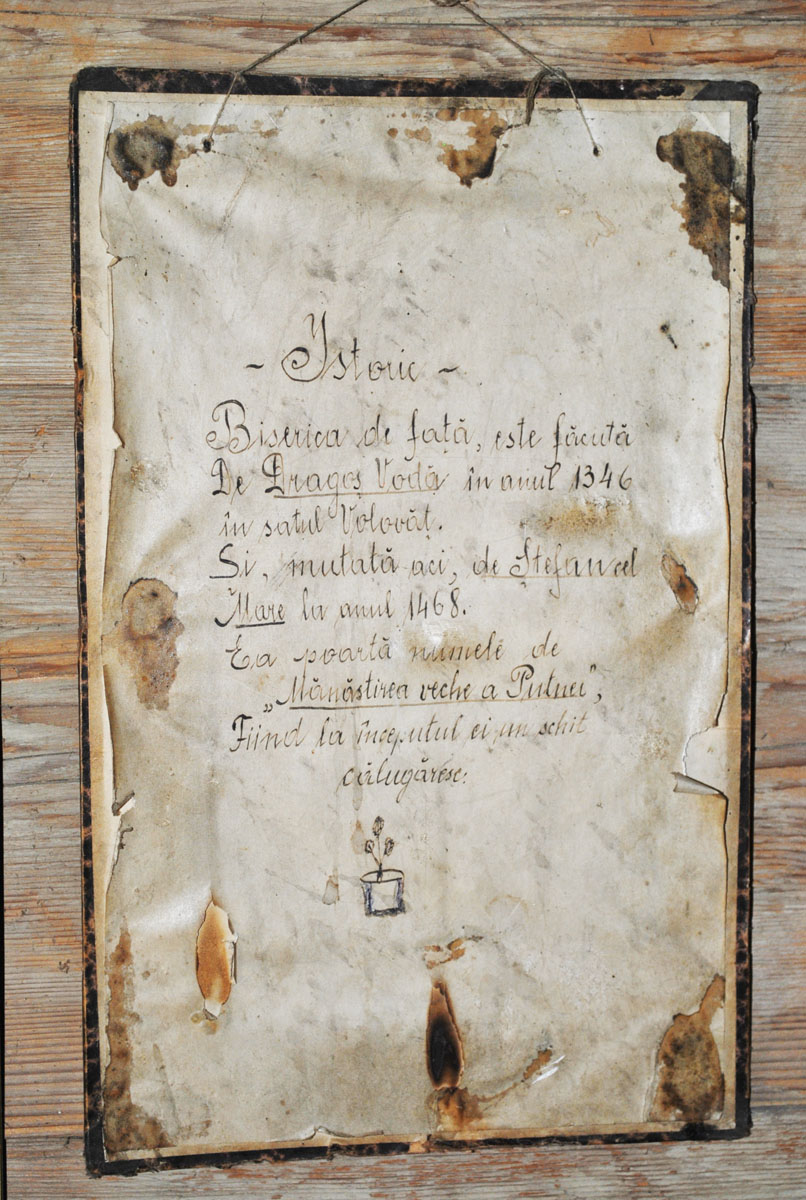 ~ Istoric ~
Biserica de față, este făcută
De Dragoș Vodă în anul 1346
în satul Volovăț.
Și, mutată aci, de Ștefan cel
Mare la anul 1468.
Ea poartă numele de
„Mănăstirea veche a Putnei",
Fiind la începutul ei un schit
călugăresc.